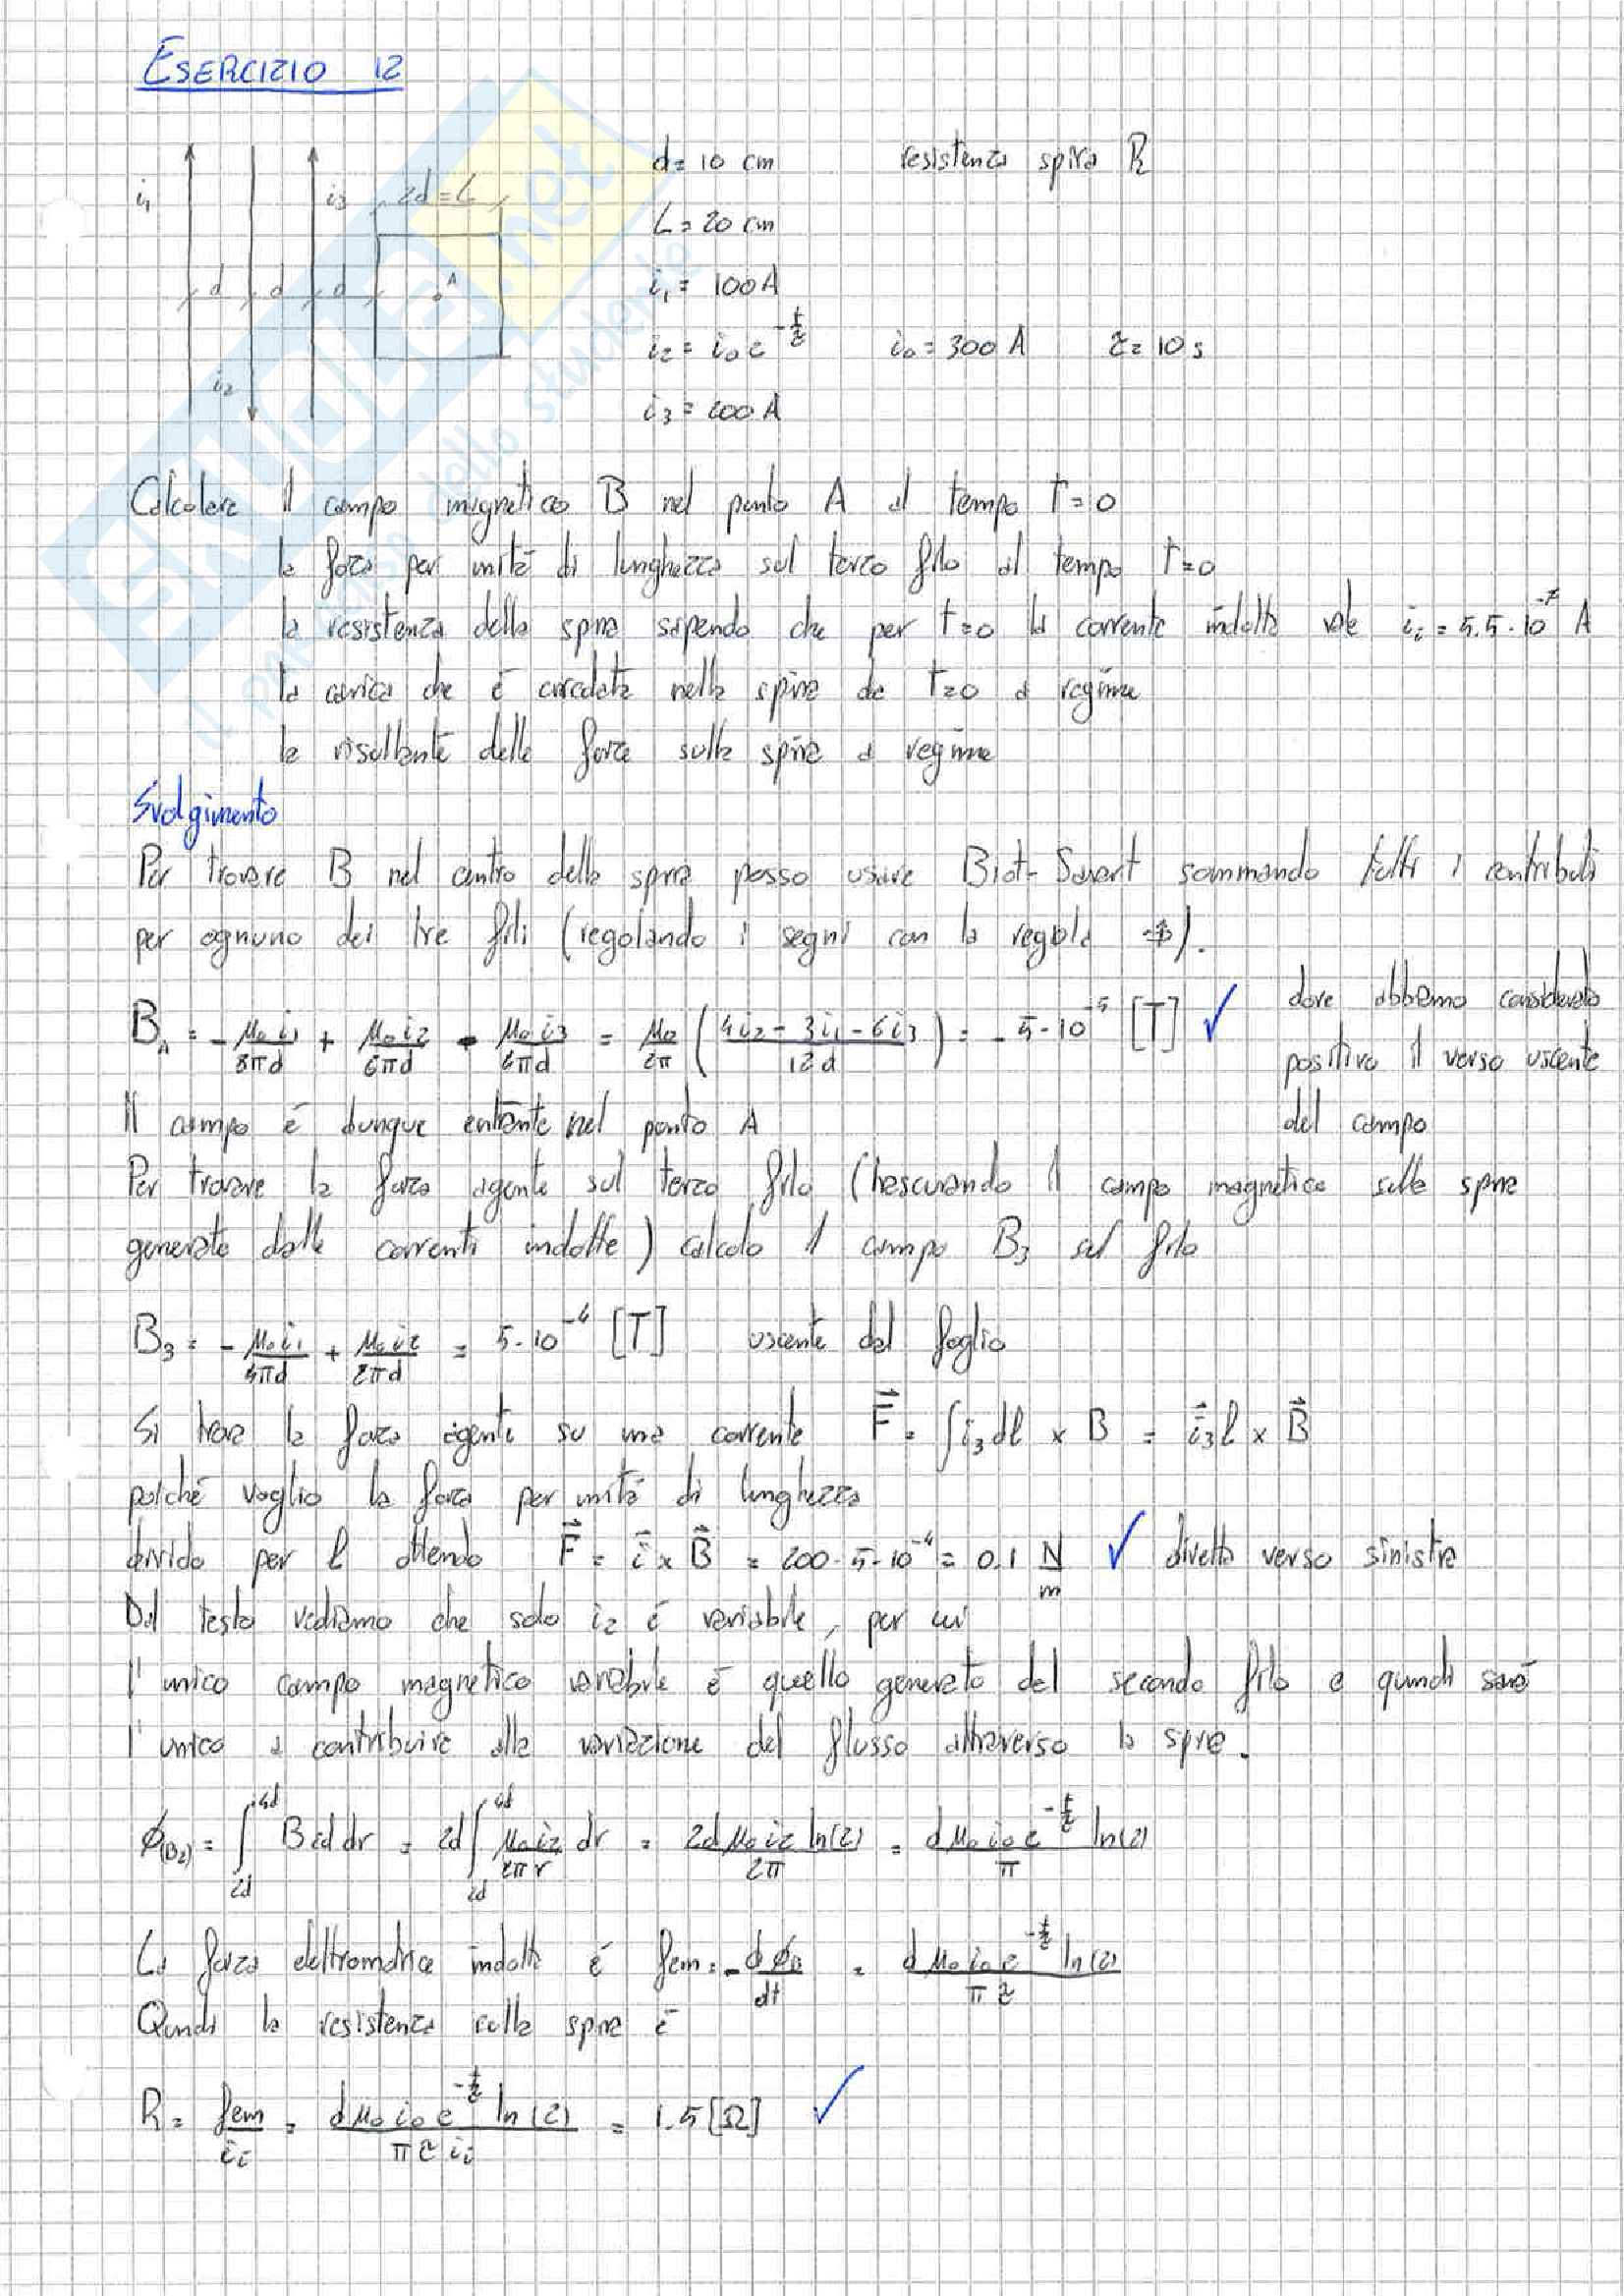 ESERCIZIO 12
d = 10 cm resistenza spira R
i1 i3 2d=L
L = 20 cm
d d d A
i1 = 100A
i2 = i0 e^(-t/τ) i0 = 300 A τ = 10 s
i2
i3 = 200A
SKUOLA.net
il paradiso dello studente
Calcolare il campo magnetico B nel punto A al tempo t=0
la forza per unità di lunghezza sul terzo filo al tempo t=0
la resistenza della spira sapendo che per t=0 la corrente indotta vale ii = 5.5·10^-7 A
la carica che è circolata nella spira da t=0 a regime
la risultante delle forze sulla spira a regime
Svolgimento
Per trovare B nel centro della spira posso usare Biot-Savart sommando tutti i contributi
per ognuno dei tre fili (regolando i segni con la regola).
BA = - μ0 i1/8πd + μ0 i2/6πd - μ0 i3/4πd = μ0/2π ( (4i2 - 3i1 - 6i3)/12d ) = - 5·10^-5 [T] ✓ dove abbiamo considerato
positivo il verso uscente
Il campo è dunque entrante nel punto A del campo
Per trovare la forza agente sul terzo filo (trascurando il campo magnetico sulla spira
generato dalle correnti indotte) calcolo il campo B3 sul filo
B3 = - μ0 i1/4πd + μ0 i2/2πd = 5·10^-4 [T] uscente dal foglio
Si trova la forza agente su una corrente F = ∫i3 dl x B = i3 l x B
poiché voglio la forza per unità di lunghezza
divido per l ottenendo F = i x B = 200·5·10^-4 = 0.1 N/m ✓ diretta verso sinistra
Dal testo vediamo che solo i2 è variabile, per cui
l'unico campo magnetico variabile è quello generato dal secondo filo e quindi sarà
l'unico a contribuire alla variazione del flusso attraverso la spira.
ϕ(B2) = ∫_2d^4d B 2d dr = 2d ∫_2d^4d μ0 i2/2πr dr = 2d μ0 i2 ln(2)/2π = d μ0 i0 e^(-t/τ) ln(2)/π
La forza elettromotrice indotta è fem = - dϕB/dt = d μ0 i0 e^(-t/τ) ln(2)/πτ
Quindi la resistenza sulla spira è
R = fem/ii = d μ0 i0 e^(-t/τ) ln(2)/πτ ii = 1.5 [Ω] ✓